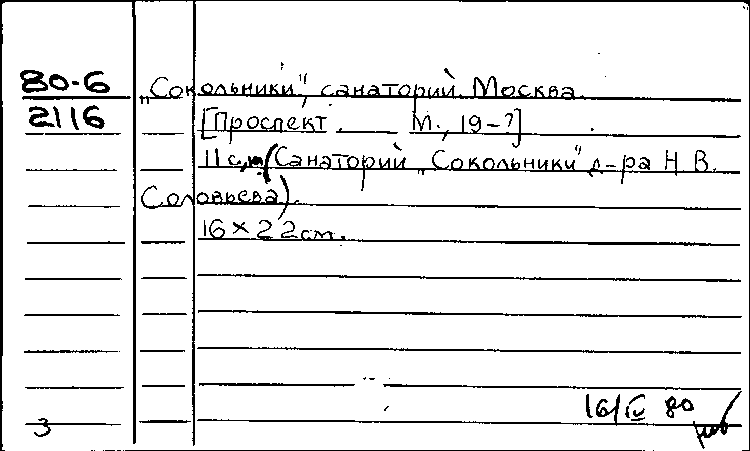 80-6
2116
„Сокольники", санаторий. Москва.
[Проспект. М., 19-?]
11 с. (Санаторий „Сокольники" д-ра Н. В.
Соловьева).
16 × 22 см.
16/IV 80
3